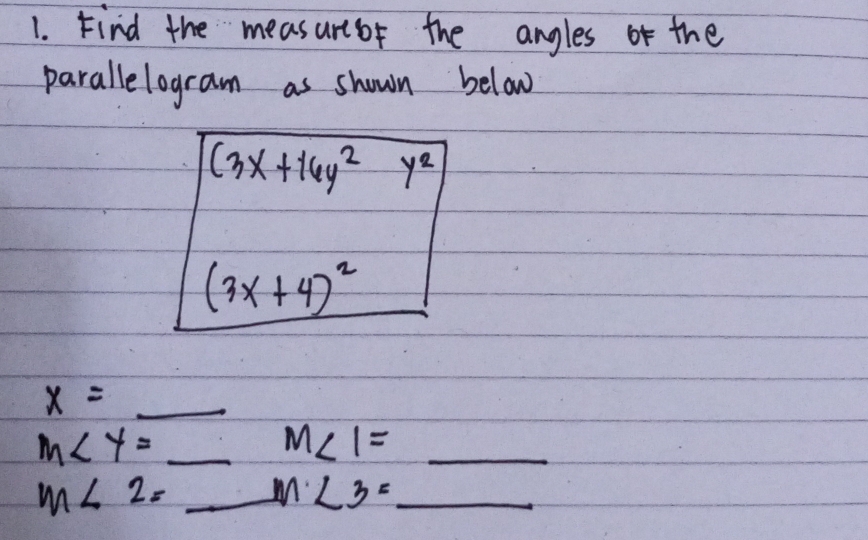 1. Find the measure of the angles of the
parallelogram as shown below
(3x + 16y² y²
(3x + 4)²
x = ____
m< y = ____ m< 1 = ____
m< 2 = ____ m< 3 = ____